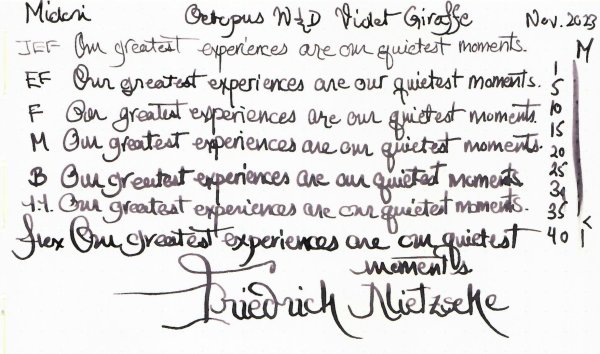 Midori Octopus W&D Violet Giraffe Nov. 2023
JEF Our greatest experiences are our quietest moments. M
EF Our greatest experiences are our quietest moments. 1
5
F Our greatest experiences are our quietest moments. 10
15
M Our greatest experiences are our quietest moments. 20
B Our greatest experiences are our quietest moments. 25
30
1.1. Our greatest experiences are our quietest moments. 35
flex Our greatest experiences are our quietest 40 < 1
moments.
Friedrich Nietzsche